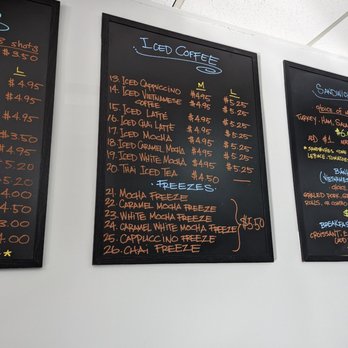 shots
$3.50
L
$4.95
$4.95
$4.95
$4.95
$4.95
$5.20
$5.20
4.00
ICED COFFEE
M L
13. ICED CAPPUCCINO $4.95 $5.25
14. ICED VIETNAMESE COFFEE $4.95 $5.25
15. ICED LATTE $4.95 $5.25
16. ICED CHAI LATTE $4.95 $5.25
17. ICED MOCHA $4.95 $5.25
18. ICED CARAMEL MOCHA $4.95 $5.25
19. ICED WHITE MOCHA $4.95 $5.25
20. THAI ICED TEA $4.95 —
FREEZES
21. MOCHA FREEZE
22. CARAMEL MOCHA FREEZE
23. WHITE MOCHA FREEZE
24. CARAMEL WHITE MOCHA FREEZE
25. CAPPUCCINO FREEZE
26. CHAI FREEZE
$5.50
SANDWIC
TURKEY, HAM,
ADD $1
BREAKFAS
CROISSANT, E